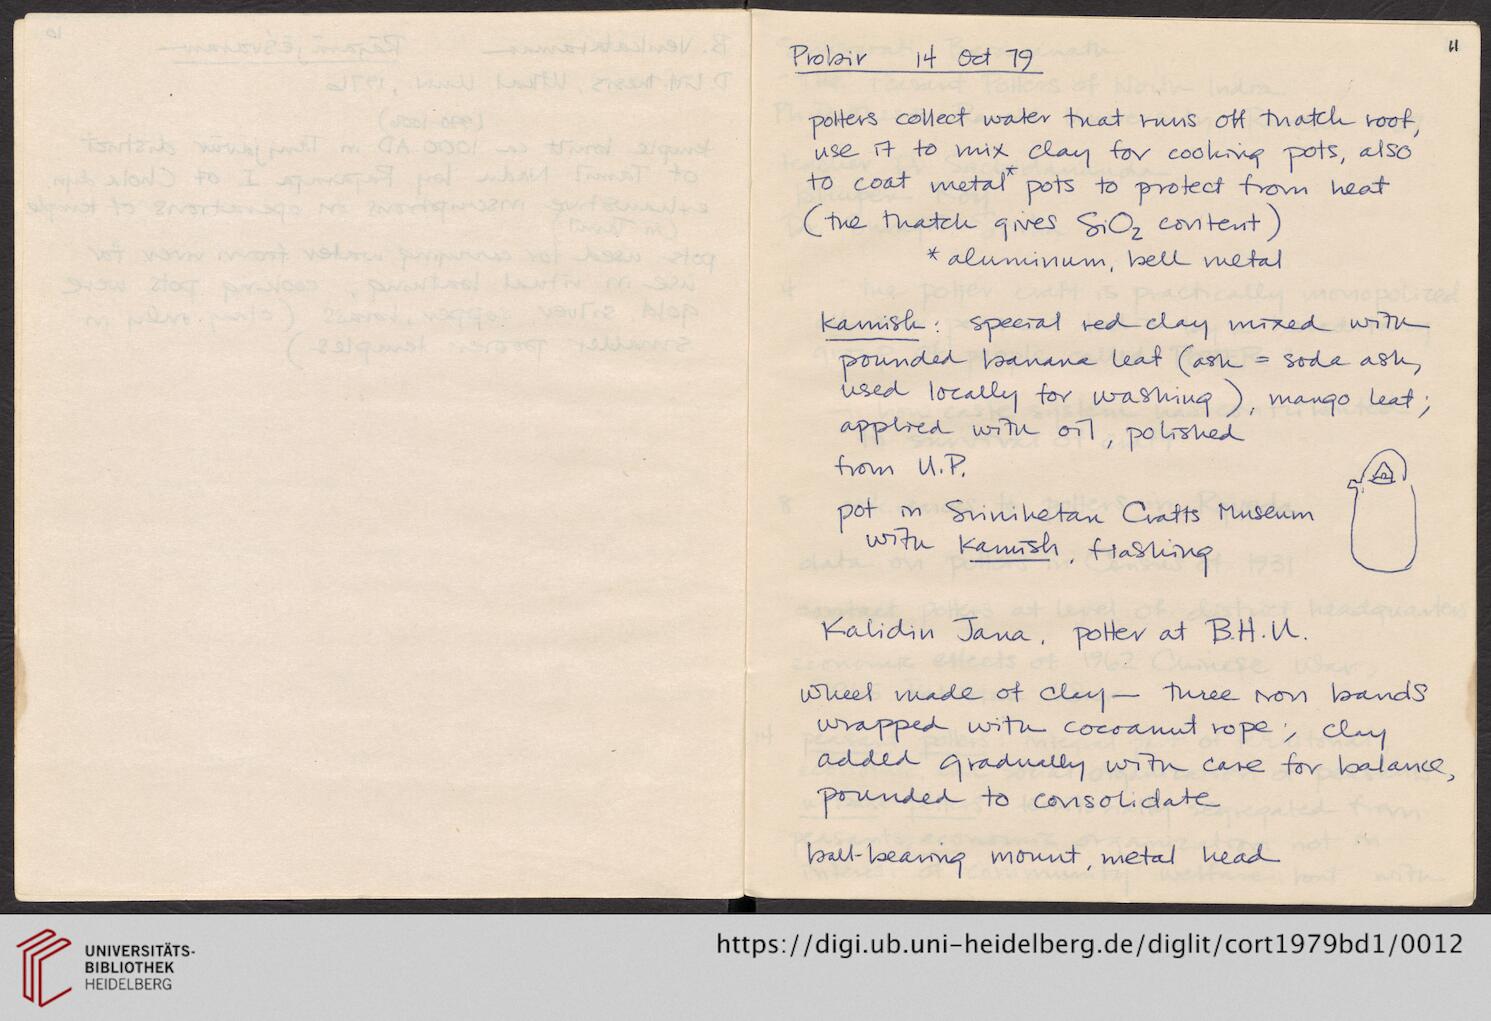 11
Probir 14 Oct 79
potters collect water that runs off thatch roof,
use it to mix clay for cooking pots, also
to coat metal* pots to protect from heat
(the thatch gives SiO2 content)
* aluminum, bell metal
kamish: special red clay mixed with
pounded banana leaf (ash = soda ash,
used locally for washing), mango leaf;
applied with oil, polished
from U.P.
pot in Sriniketan Crafts Museum
with kamish, flashing
Kalidin Jana, potter at B.H.U.
wheel made of clay — three iron bands
wrapped with cocoanut rope; clay
added gradually with care for balance,
pounded to consolidate
ball-bearing mount, metal head
UNIVERSITÄTS-
BIBLIOTHEK
HEIDELBERG
https://digi.ub.uni-heidelberg.de/diglit/cort1979bd1/0012